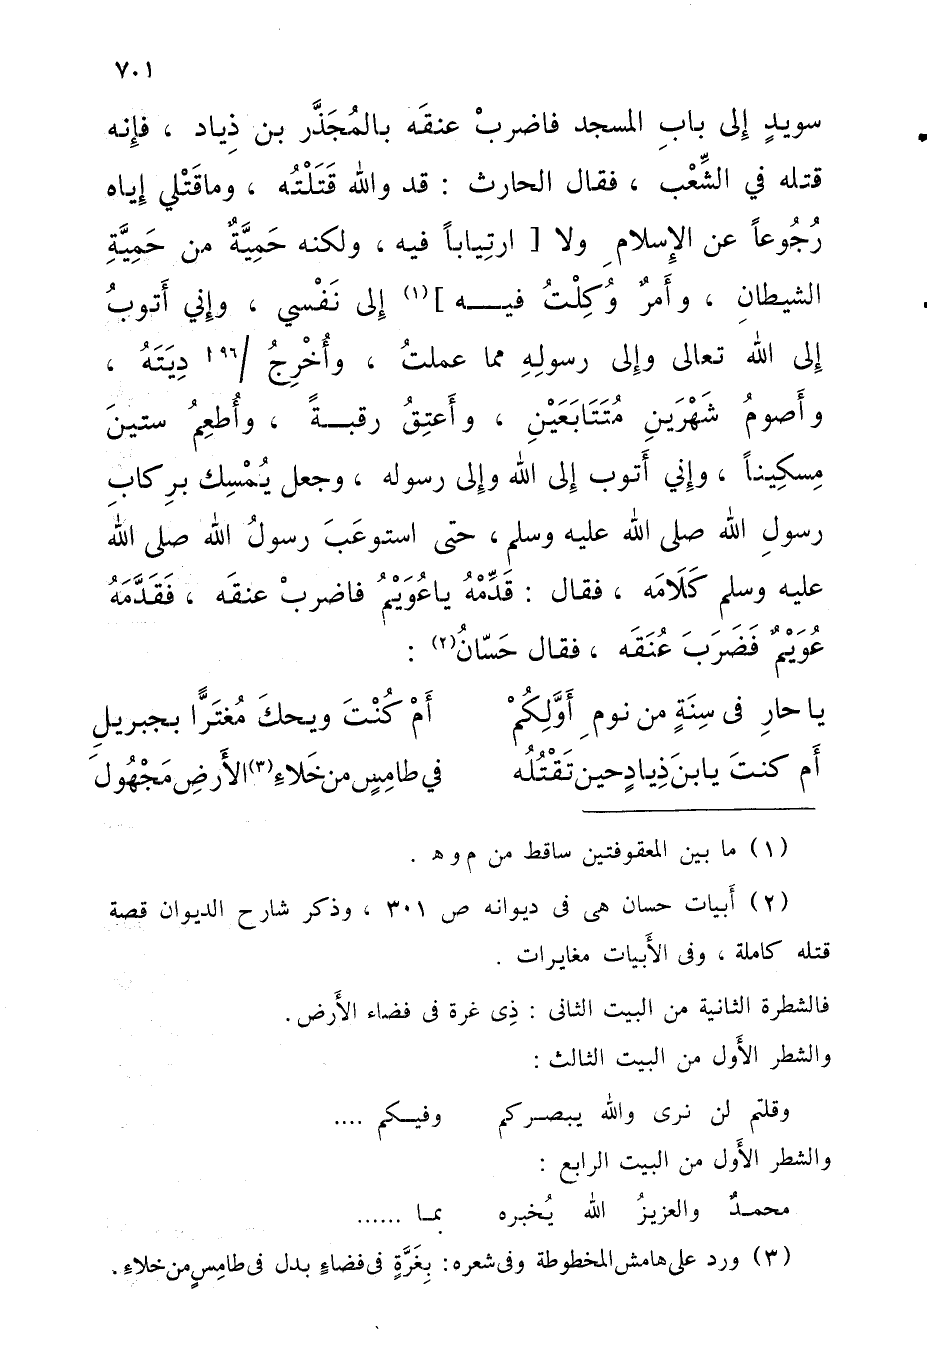 ٧٠١
سويدٍ إلى بابِ المسجد فاضربْ عنقَه بالمُجَذَّر بن ذِياد ، فإِنه
قتله في الشِّعْب ، فقال الحارث : قد والله قَتَلْتُه ، وماقَتْلي إياه
رُجُوعاً عن الإِسلامِ ولا [ ارتِياباً فيه ، ولكنه حَمِيَّةٌ من حَمِيَّةِ
الشيطانِ ، وأَمرٌ وُكِلْتُ فيــه ](١) إلى نَفْسي ، وإني أَتوبُ
إلى الله تعالى وإلى رسولِهِ مما عملتُ ، وأُخْرِجُ /١٩٦ دِيَتَهُ ،
وأَصومُ شَهْرَينِ مُتَتَابَعَيْنِ ، وأَعتِقُ رقبــةً ، وأُطعِمُ ستينَ
مِسكِيناً ، وإني أَتوب إلى الله وإلى رسوله ، وجعل يُمْسِك بِركابِ
رسولِ الله صلى الله عليه وسلم ، حتى استوعَبَ رسولُ الله صلى الله
عليه وسلم كَلَامَه ، فقال : قَدِّمْهُ ياعُوَيْمُ فاضربْ عنقَه ، فَقَدَّمَهُ
عُوَيْمٌ فَضَرَبَ عُنَقَه ، فقال حَسّانُ(٢) :
يا حارِ فى سِنَةٍ من نومِ أَوَّلِكُمْ أَمْ كُنْتَ ويحكَ مُغتَرًّا بجبريلِ
أَم كنتَ يابنَ ذِيادٍ حين تَقْتُلُه في طامِسٍ من خَلاءِ(٣) الأَرضِ مَجْهُولَ
(١) ما بين المعقوفتين ساقط من م و هـ .
(٢) أَبيات حسان هى فى ديوانه ص ٣٠١ ، وذكر شارح الديوان قصة
قتله كاملة ، وفى الأَبيات مغايرات .
فالشطرة الثانية من البيت الثانى : ذِى غرة فى فضاء الأَرض .
والشطر الأَول من البيت الثالث :
وقلتم لن نرى والله يبصركم وفيـكم ....
والشطر الأَول من البيت الرابع :
محمــدٌ والعزيزُ الله يُخبره بمـا ......
(٣) ورد على هامش المخطوطة وفى شعره : بِغَرَّةٍ فى فضاءٍ بدل فى طامِسٍ من خلاءِ .